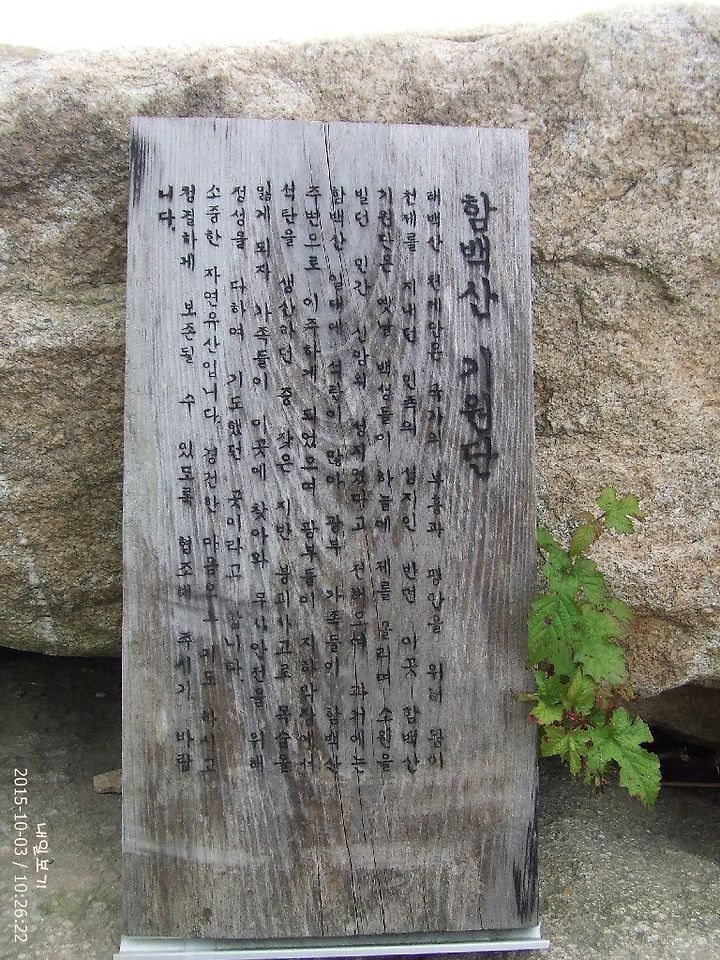 함백산 기원단
태백산 천제단은 국가의 부흥과 평안을 위해 왕이
천제를 지내던 민족의 성지인 반면 이곳 함백산
기원단은 옛날 백성들이 하늘에 제를 올리며 소원을
빌던 민간 신앙의 성지였다고 전해오며 과거에는
함백산 일대에 석탄이 많아 광부 가족들이 함백산
주변으로 이주하게 되었으며 광부들이 지하막장에서
석탄을 생산하던 중 잦은 지반 붕괴사고로 목숨을
잃게 되자 가족들이 이곳에 찾아와 무사안전을 위해
정성을 다하여 기도했던 곳이라고 합니다.
소중한 자연유산입니다. 경건한 마음으로 기도 하시고
청결하게 보존될 수 있도록 협조해 주시기 바랍
니다.
내일보기
2015-10-03 / 10:26:22